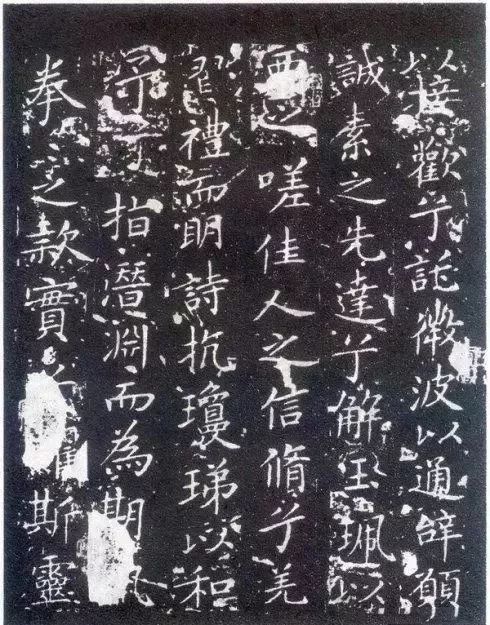 以接歡兮託微波以通辞願
誠素之先達兮解玉珮以
要之嗟佳人之信脩兮羌
習禮而明詩抗瓊珶以和
予兮指潛淵而為期
拳之款實兮懼斯靈